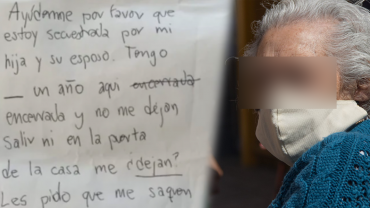 Ayúdenme por favor que
estoy secuestrada por mi
hija y su esposo. Tengo
__ un año aquí encerrada
encerrada y no me dejan
Saliv ni en la puerta
de la casa me ¿dejan?
Les pido que me saquen